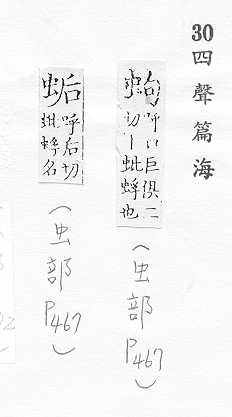 30 四聲篇海
蚼
呼口巨俱二
切丨蚍蜉也
(虫部 P467)
呼后切
蚍蜉名
(虫部 P467)